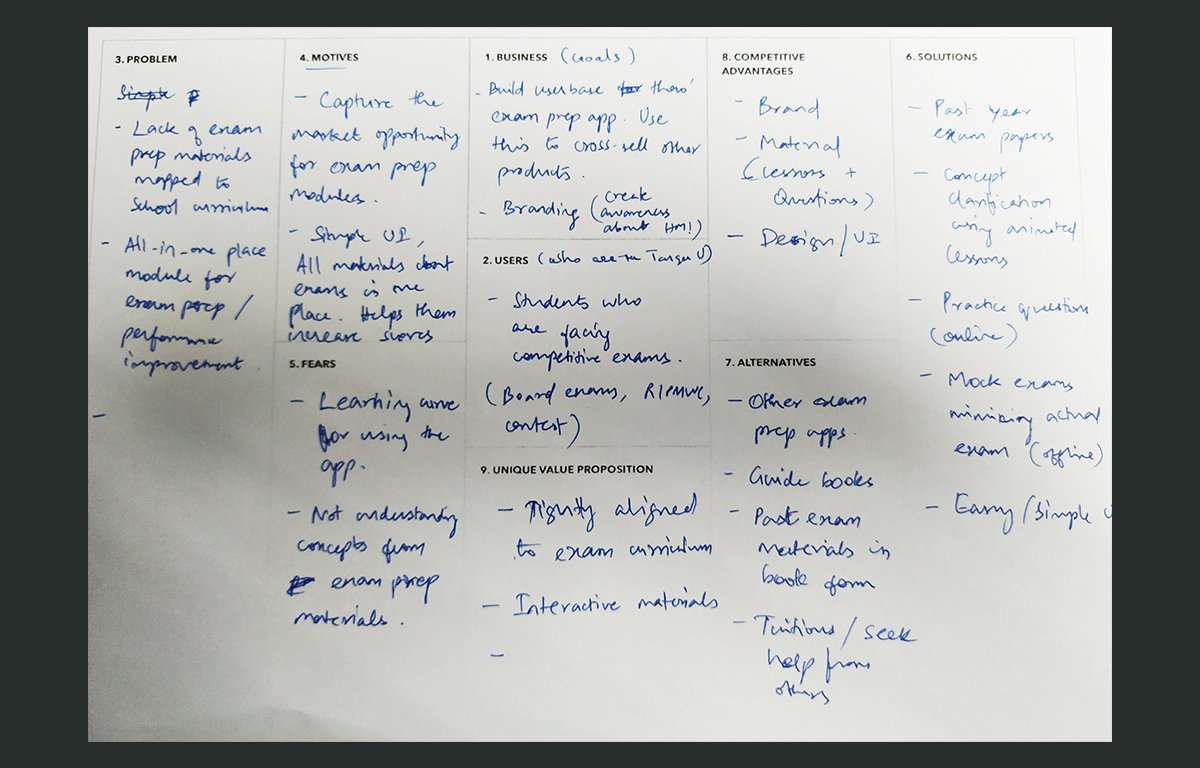 3. PROBLEM
- Lack of exam
prep materials
mapped to
school curriculum
- All-in-one place
module for
exam prep /
performance
improvement.
-
4. MOTIVES
- Capture the
market opportunity
for exam prep
modules.
- Simple UI,
All materials about
exams in one
place. Helps them
increase scores
5. FEARS
- Learning curve
for using the
app.
- Not understanding
concepts from
exam prep
materials.
1. BUSINESS (Goals)
- Build userbase thoro'
exam prep app. Use
this to cross-sell other
products.
- Branding (create
awareness
about HM!)
2. USERS (who are the Target U)
- Students who
are facing
competitive exams.
(Board exams,
contest)
9. UNIQUE VALUE PROPOSITION
- Tightly aligned
to exam curriculum
- Interactive materials
-
8. COMPETITIVE
ADVANTAGES
- Brand
- Material
(Lessons +
Questions)
- Design/UI
7. ALTERNATIVES
- Other exam
prep apps.
- Guide books
- Past exam
materials in
book form
- Tuitions / seek
help from
others
6. SOLUTIONS
- Past year
exam papers
- Concept
clarification
using animated
lessons
- Practice questions
(online)
- Mock exams
mimicking actual
exam (offline)
- Easy/Simple